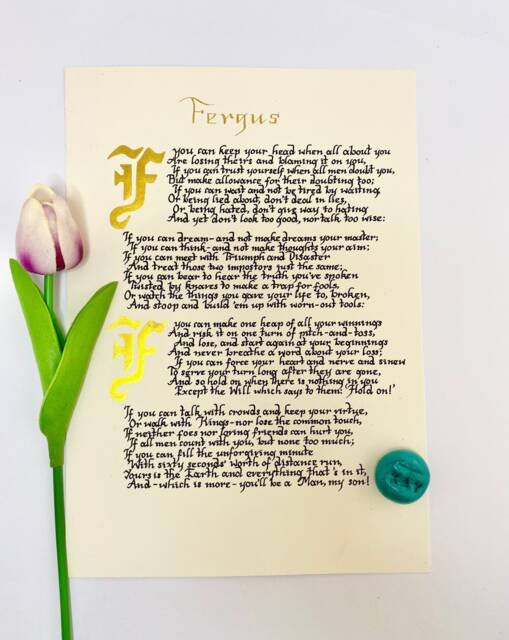 Fergus
If you can keep your head when all about you
Are losing theirs and blaming it on you,
If you can trust yourself when all men doubt you,
But make allowance for their doubting too;
If you can wait and not be tired by waiting,
Or being lied about, don't deal in lies,
Or being hated, don't give way to hating
And yet don't look too good, nor talk too wise:
If you can dream-and not make dreams your master;
If you can think-and not make thoughts your aim;
If you can meet with Triumph and Disaster
And treat those two impostors just the same;
If you can bear to hear the truth you've spoken
Twisted by knaves to make a trap for fools,
Or watch the things you gave your life to, broken,
And stoop and build 'em up with worn-out tools:
If you can make one heap of all your winnings
And risk it on one turn of pitch-and-toss,
And lose, and start again at your beginnings
And never breathe a word about your loss;
If you can force your heart and nerve and sinew
To serve your turn long after they are gone,
And so hold on when there is nothing in you
Except the Will which says to them: 'Hold on!'
If you can talk with crowds and keep your virtue,
Or walk with Kings-nor lose the common touch,
If neither foes nor loving friends can hurt you,
If all men count with you, but none too much;
If you can fill the unforgiving minute
With sixty seconds' worth of distance run,
Yours is the Earth and everything that's in it,
And-which is more-you'll be a Man, my son!